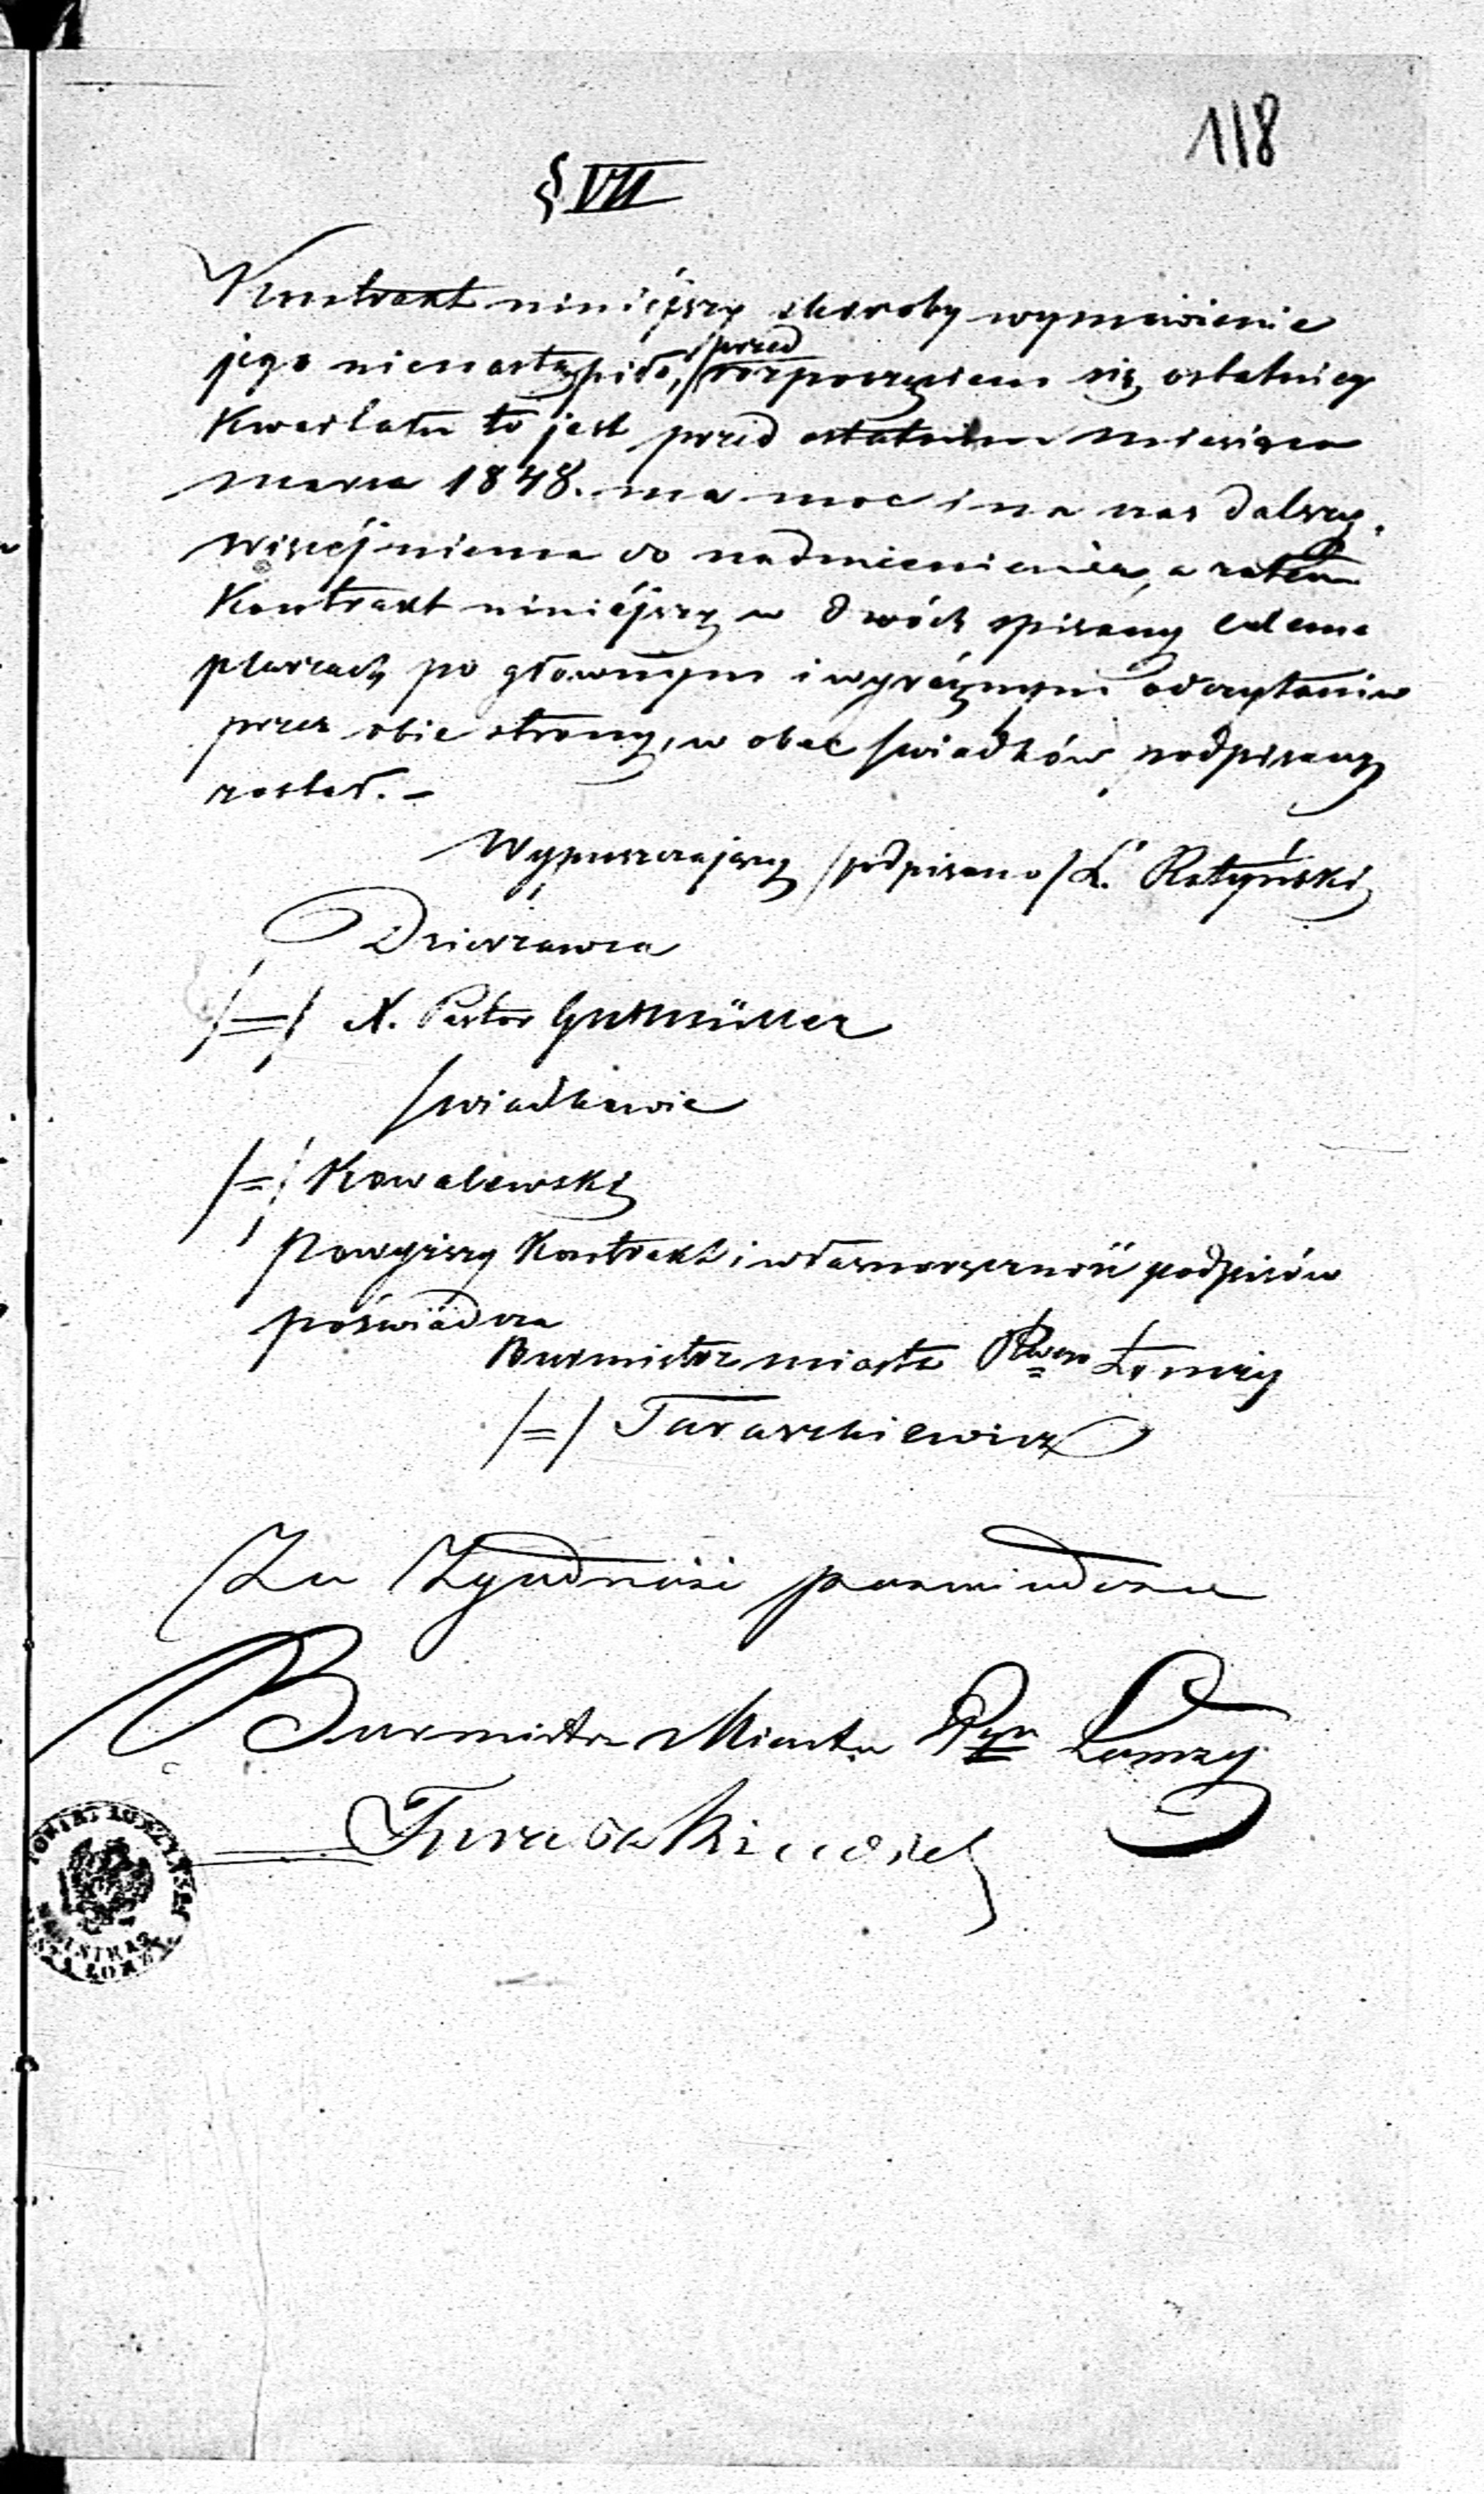 118
§ VII
Kontrakt niniéjszy skoroby wymówienie
jego nienastąpiło, przed rozpoczęciem się ostatniey
Kwartału to jest przed ostatnim miesiąca
marca 1848. ma moc i na czas dalszy.
Więcéj niema do nadmienienia, a zatém
Kontrakt niniéjszy w dwóch spisany exlem
plarzach po głownym i wyraźnym odczytaniu
przez obie strony, w obec swiadków podpisany
został. –
Wypuszczający /podpisano/ L. Ratyński
Dzierzawca
/=/ X. Pastor Gutmüller
swiadkowie
/=/ Kowalewski
Powyższy Kontrakt i własnoręczność podpisów
poświadcza
Burmistrz miasta Łomży
/=/ Taraszkiewicz
Za Zgodność poswiadcza
Burmistrz Miasta Łomży
Taraszkiewicz
POWIAT ŁOMZYNSKI